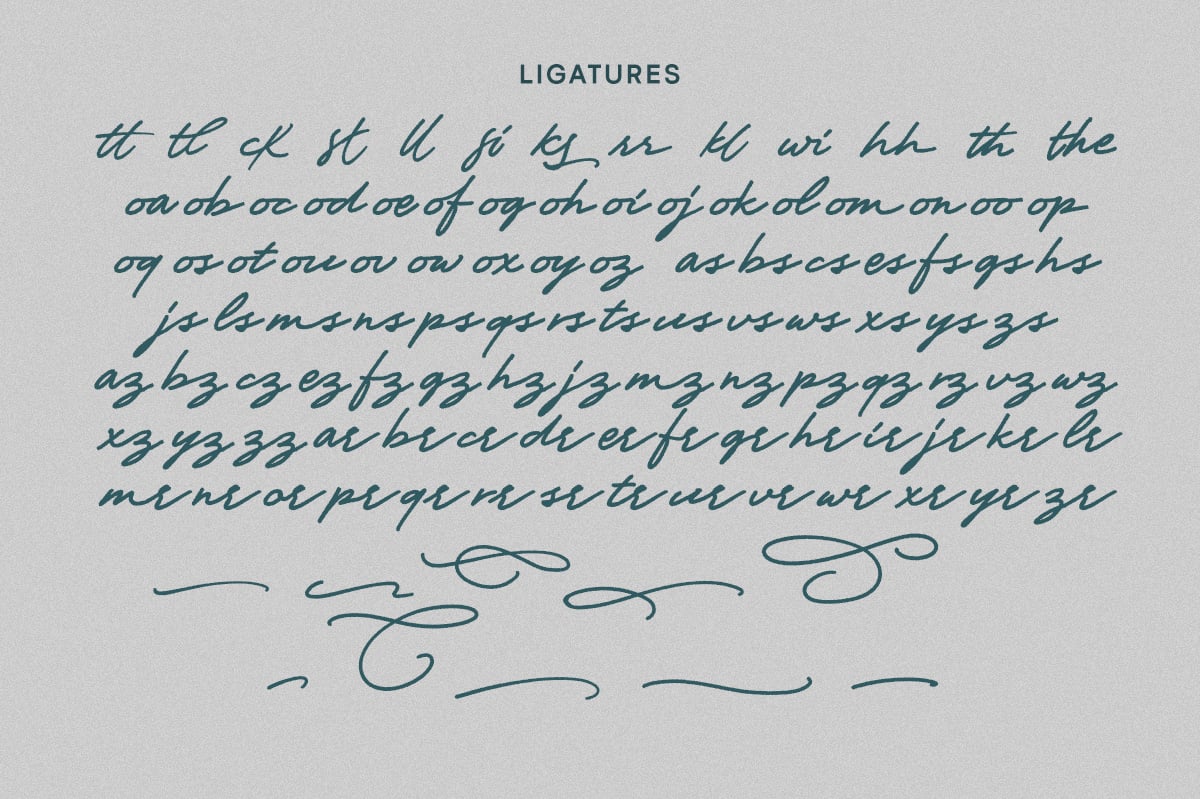 LIGATURES
tt tl ck st ll si ks rr kl wi hh th the
oa ob oc od oe of og oh oi oj ok ol om on oo op
oq os ot ou ov ow ox oy oz as bs cs es fs gs hs
js ls ms ns ps qs rs ts us vs ws xs ys zs
az bz cz ez fz gz hz jz mz nz pz qz rz vz wz
xz yz zz ar br cr dr er fr gr hr ir jr kr lr
mr nr or pr qr rr sr tr ur vr wr xr yr zr